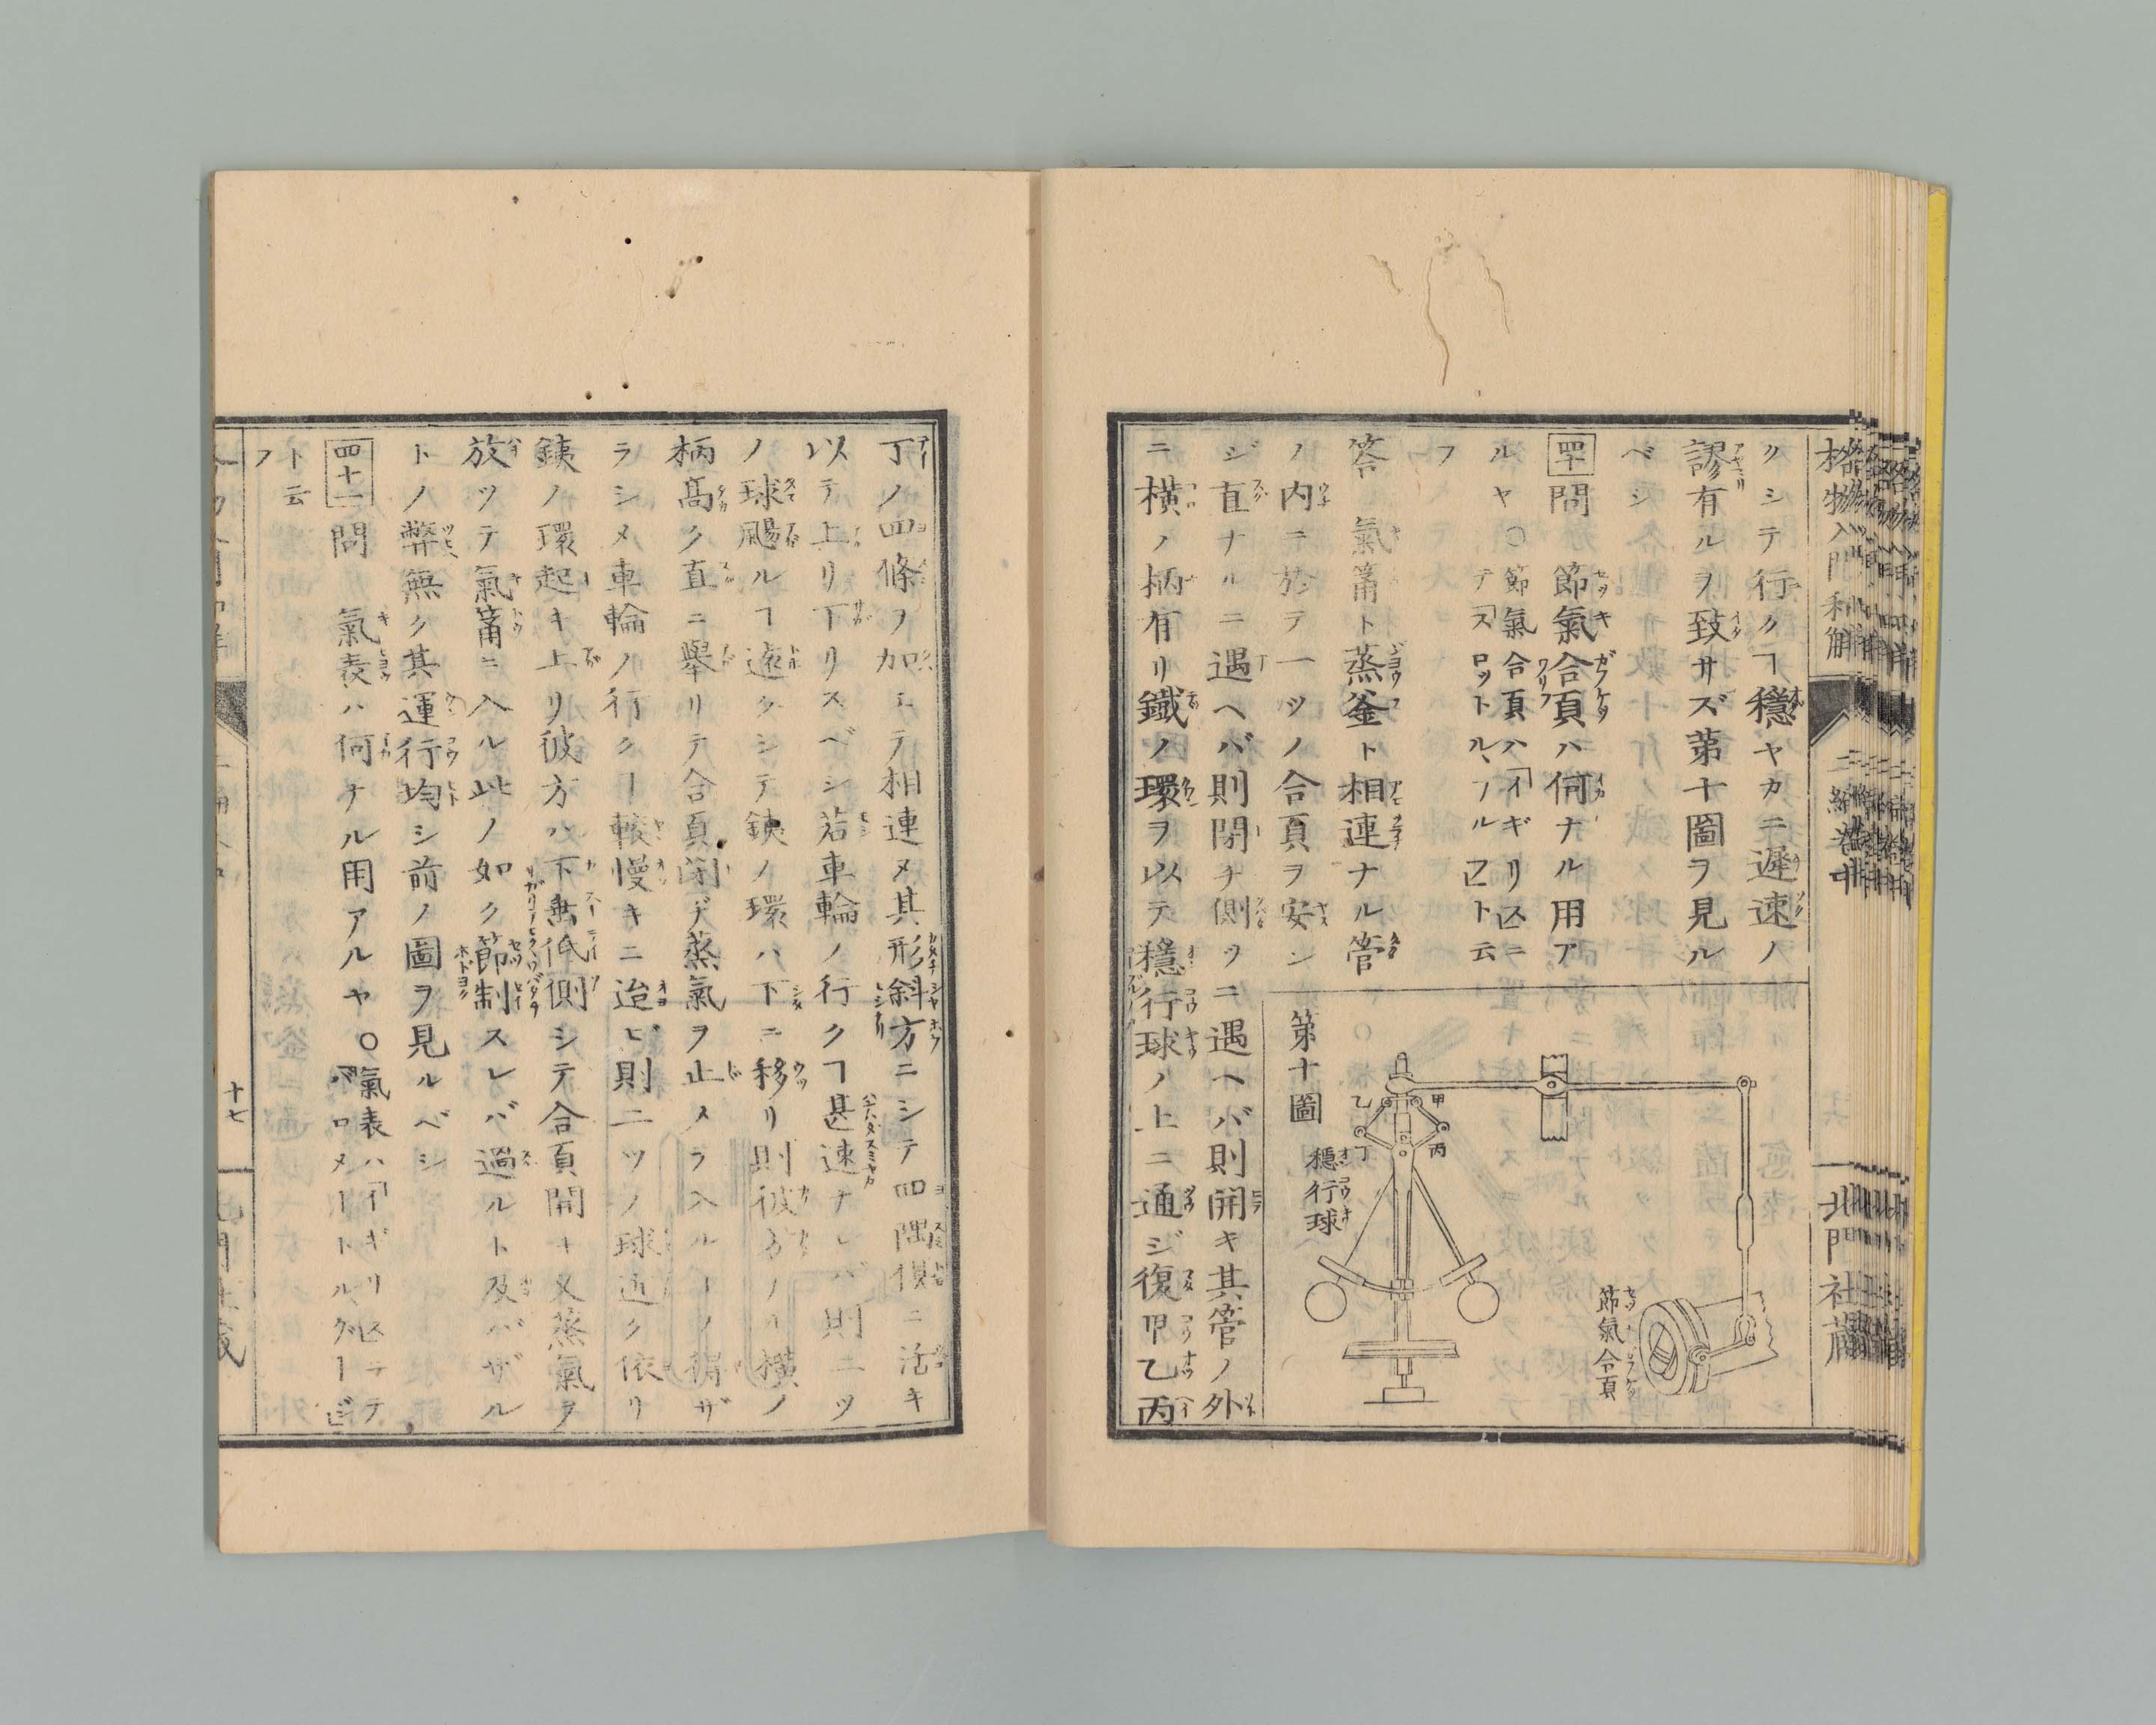 格物入門和解
二編 巻中
北門社蔵
クシテ行クヿ穩ヤカニ遲速ノ
謬有ルヲ致サズ第十圖ヲ見ル
ベシ
四十 問 節氣合頁ハ何ナル用ア
ルヤ〇節氣合頁ハ「イギリス」ニテ「スロットル、フルブ」ト云
フ
答 氣筩ト蒸釜ト相連ナル管
ノ内ニ於テ一ツノ合頁ヲ安シ
ジ直ナルニ遇ヘバ則閉チ側ヲニ遇ヘバ則開キ其管ノ外
ニ横ノ柄有リ鐵ノ環ヲ以テ穩行球ノ上ニ通ジ復甲乙丙
第十圖
甲
乙
丙
丁
穩行球
節氣合頁
丁ノ四條ヲ加ヘテ相連ヌ其形斜方ニシテ四隅倶ニ活キ
以テ上リ下リスベシ若車輪ノ行クヿ甚速ナレバ則二ツ
ノ球颺ルヿ遠クシテ銕ノ環ハ下ニ移リ則彼方ノ横ノ
柄高ク直ニ舉リテ合頁閉ヂ蒸氣ヲ止メラ入ルヿヲ得ザ
ラシメ車輪ノ行クヿ較慢キニ迨ビ則二ツノ球近ク依リ
銕ノ環起キ上リ彼方ハ下垂低側シテ合頁開キ又蒸氣ヲ
放ツテ氣筩ニ入ル此ノ如ク節制スレバ過ルト及バザル
トノ弊無ク其運行均シ前ノ圖ヲ見ルベシ
四十一 問 氣表ハ何ナル用アルヤ〇氣表ハ「イギリス」ニテ「バロメートルゲージ」
ト云
フ
十七